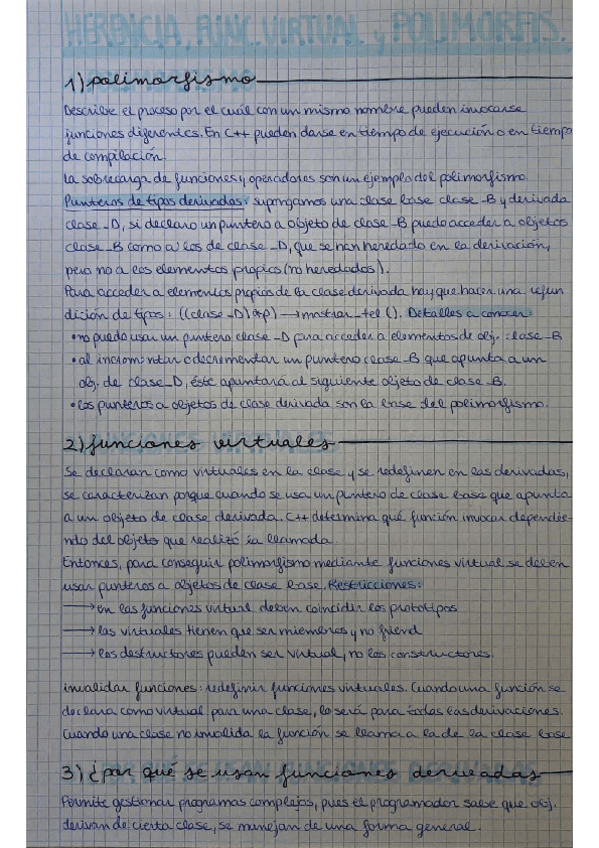 HERENCIA, FUNC. VIRTUAL y POLIMORFIS.
1) polimorfismo
Describe el proceso por el cuál con un mismo nombre pueden invocarse
funciones diferentes. En C++ pueden darse en tiempo de ejecución o en tiempo
de compilación.
La sobrecarga de funciones y operadores son un ejemplo del polimorfismo.
Punteros de tipos derivados: supongamos una clase base clase_B y derivada
clase_D, si declaro un puntero a objeto de clase_B puedo acceder a objetos
clase_B como a los de clase_D, que se han heredado en la derivación,
pero no a los elementos propios (no heredados).
Para acceder a elementos propios de la clase derivada hay que hacer una refun
dición de tipos: ((clase_D)*p) → mostrar_tel(). Detalles a conocer:
• no puedo usar un puntero clase_D para acceder a elementos de obj. clase_B
• al incrementar o decrementar un puntero clase_B que apunta a un
obj. de clase_D, éste apuntará al siguiente objeto de clase_B.
• los punteros a objetos de clase derivada son la base del polimorfismo.
2) funciones virtuales
Se declaran como virtuales en la clase y se redefinen en las derivadas,
se caracterizan porque cuando se usa un puntero de clase base que apunta
a un objeto de clase derivada. C++ determina qué función invocar dependie-
ndo del objeto que realizó la llamada.
Entonces, para conseguir polimorfismo mediante funciones virtual se deben
usar punteros a objetos de clase base. Restricciones:
→ en las funciones virtual deben coincidir los prototipos
→ las virtuales tienen que ser miembros y no friend
→ los destructores pueden ser virtual, no los constructores.
invalidar funciones: redefinir funciones virtuales. Cuando una función se
declara como virtual para una clase, lo será para todas las derivaciones.
Cuando una clase no invalida la función se llama a la de la clase base
3) ¿por qué se usan funciones derivadas
Permite gestionar programas complejos, pues el programador sabe que obj.
derivan de cierta clase, se manejan de una forma general.